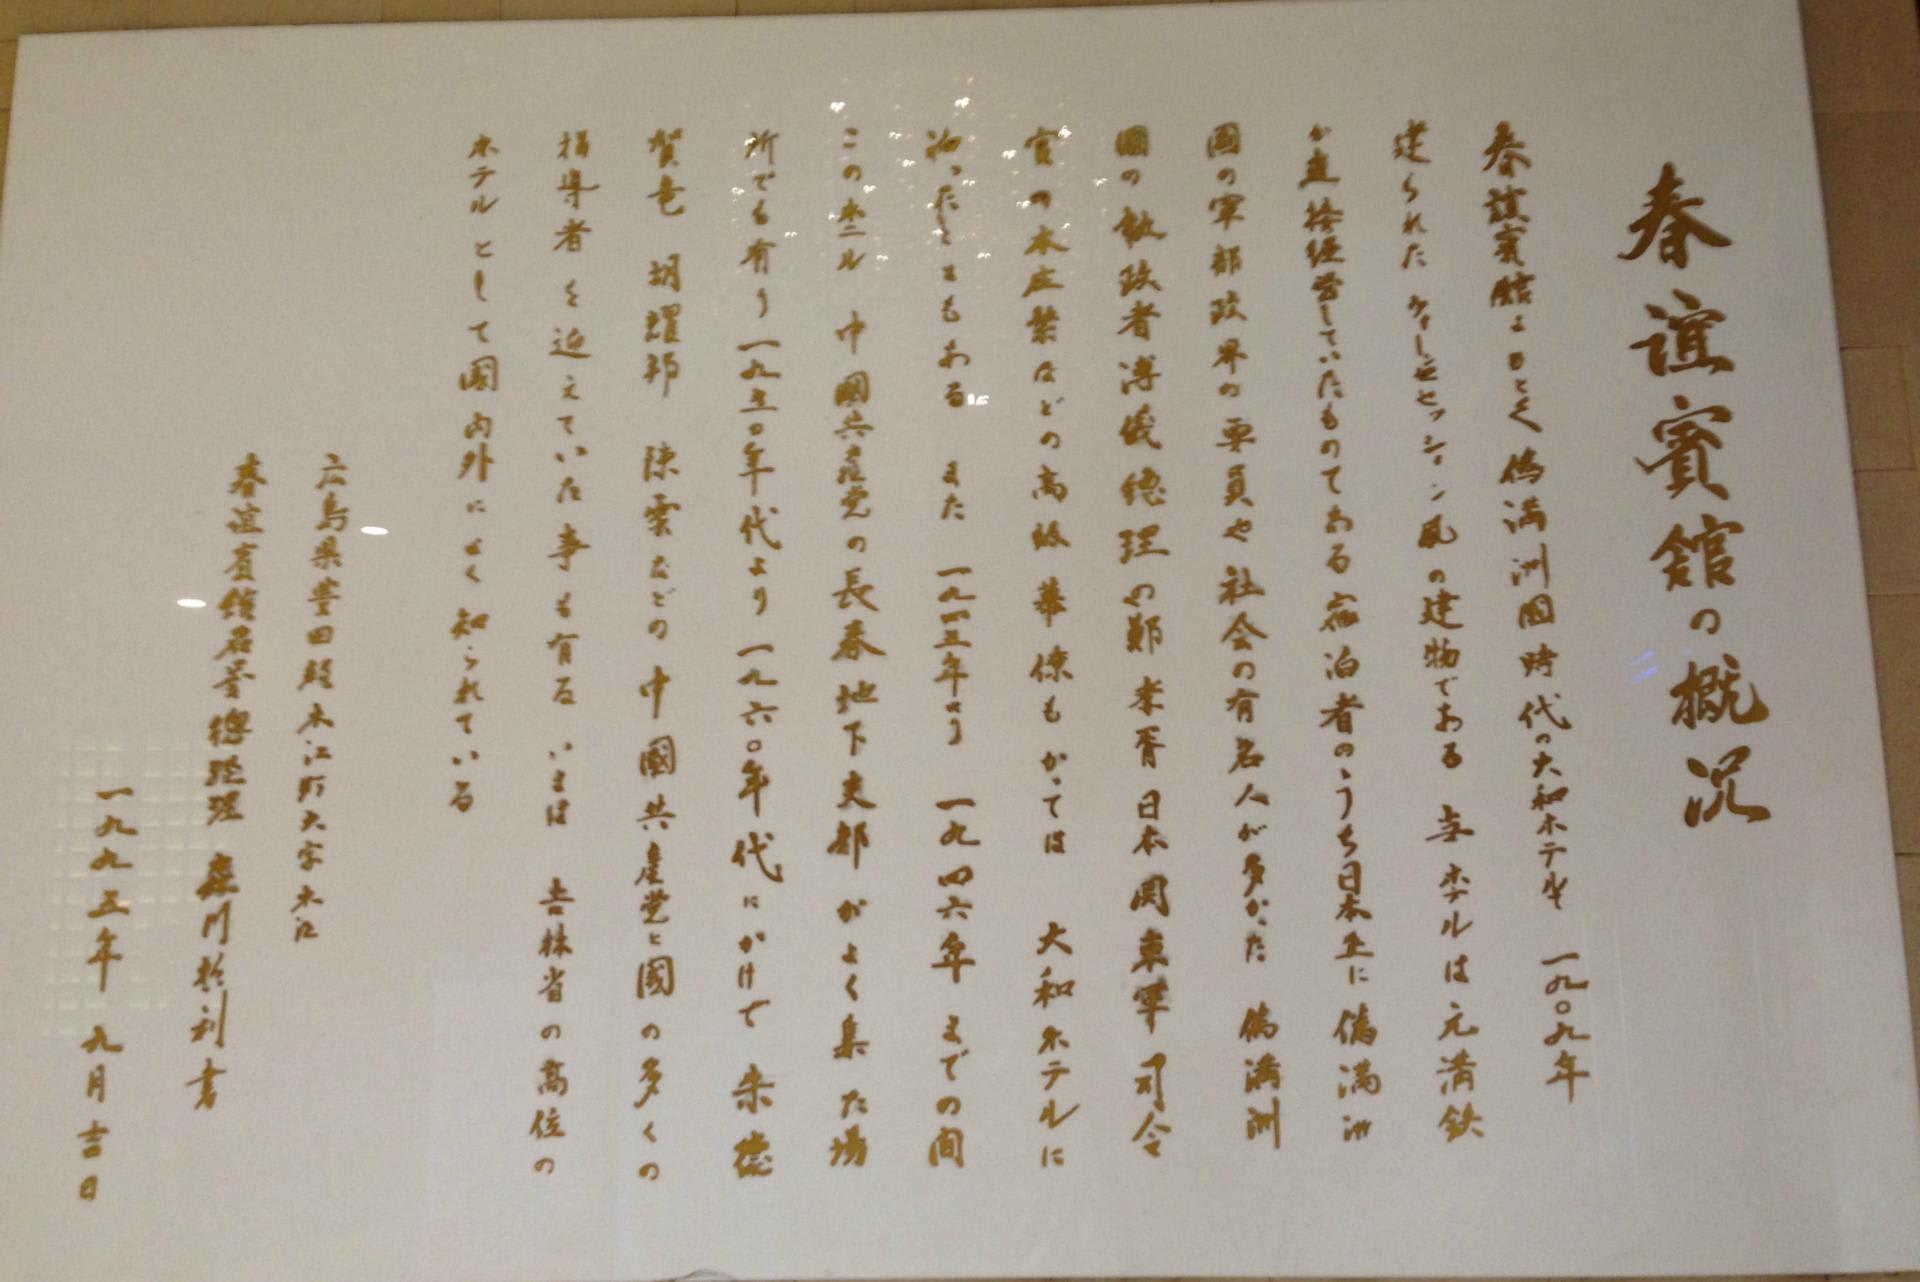 春誼賓館の概況
春誼賓館はもとく偽満洲國時代の大和ホテルで 一九〇九年
建られた ウィーンセセッション風の建物である 元満鉄
が直接経営していたものである 宿泊者のうち日本並に偽満洲
國の軍部政界の要員や社会の有名人が多かった 偽満洲
國の執政者溥儀 總理の鄭孝胥 日本関東軍司令
官の本庄繁などの高級幕僚もかつては 大和ホテルに
泊ったこともある また 一九四五年より 一九四六年までの間
このホテル 中國共産党の長春地下支部がよく集た場
所でも有り 一九五〇年代より一九六〇年代にかけて 朱德
賀竜 胡耀邦 陳雲などの中國共産党と國の多くの
指導者を迎えていた事も有る いまは 吉林省の高位の
ホテルとして國内外によく知られている
広島県豊田郡木江町大字木江
春誼賓館名誉總経理 森川於利書
一九九五年 九月吉日